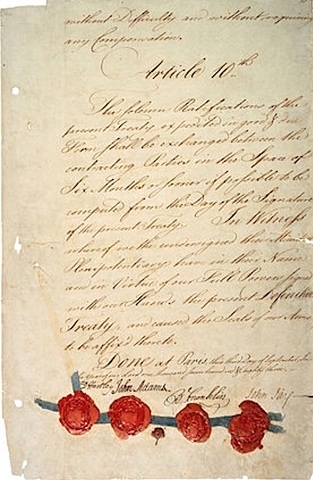 without Difficulty and without requiring
any Compensation.
Article 10th
The solemn Ratifications of the
present Treaty expedited in good & due
Form shall be exchanged between the
contracting Parties in the Space of
Six Months or sooner if possible to be
computed from the Day of the Signature
of the present Treaty. In Witness
whereof we the undersigned their Ministers
Plenipotentiary have in their Name
and in Virtue of our Full Powers signed
with our Hands the present Definitive
Treaty, and caused the Seals of our Arms
to be affix'd thereto.
Done at Paris, this third Day of September, In
the year of our Lord one thousand seven hundred & eighty three.
D Hartley John Adams B Franklin John Jay